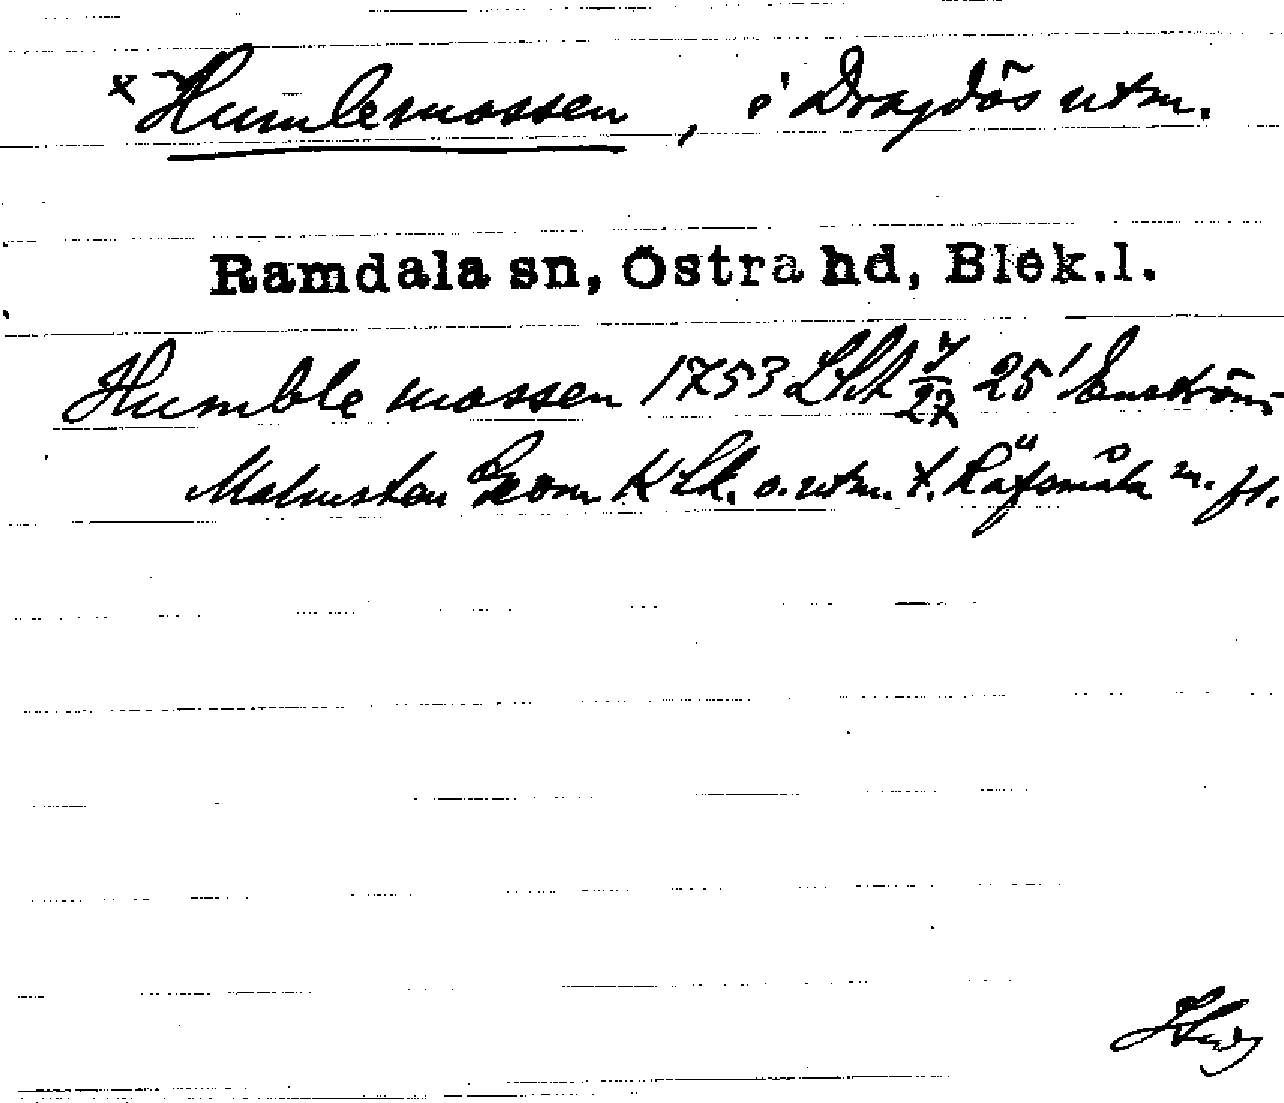 x Humlemossen, i Dragsjös utm.
Ramdala sn, Östra hd, Blek.l.
Humble mossen 1753 LSA 7/27 25' Enström
Malmsten Geom K Ch. o. utm. t. Räfsmåla m. fl.